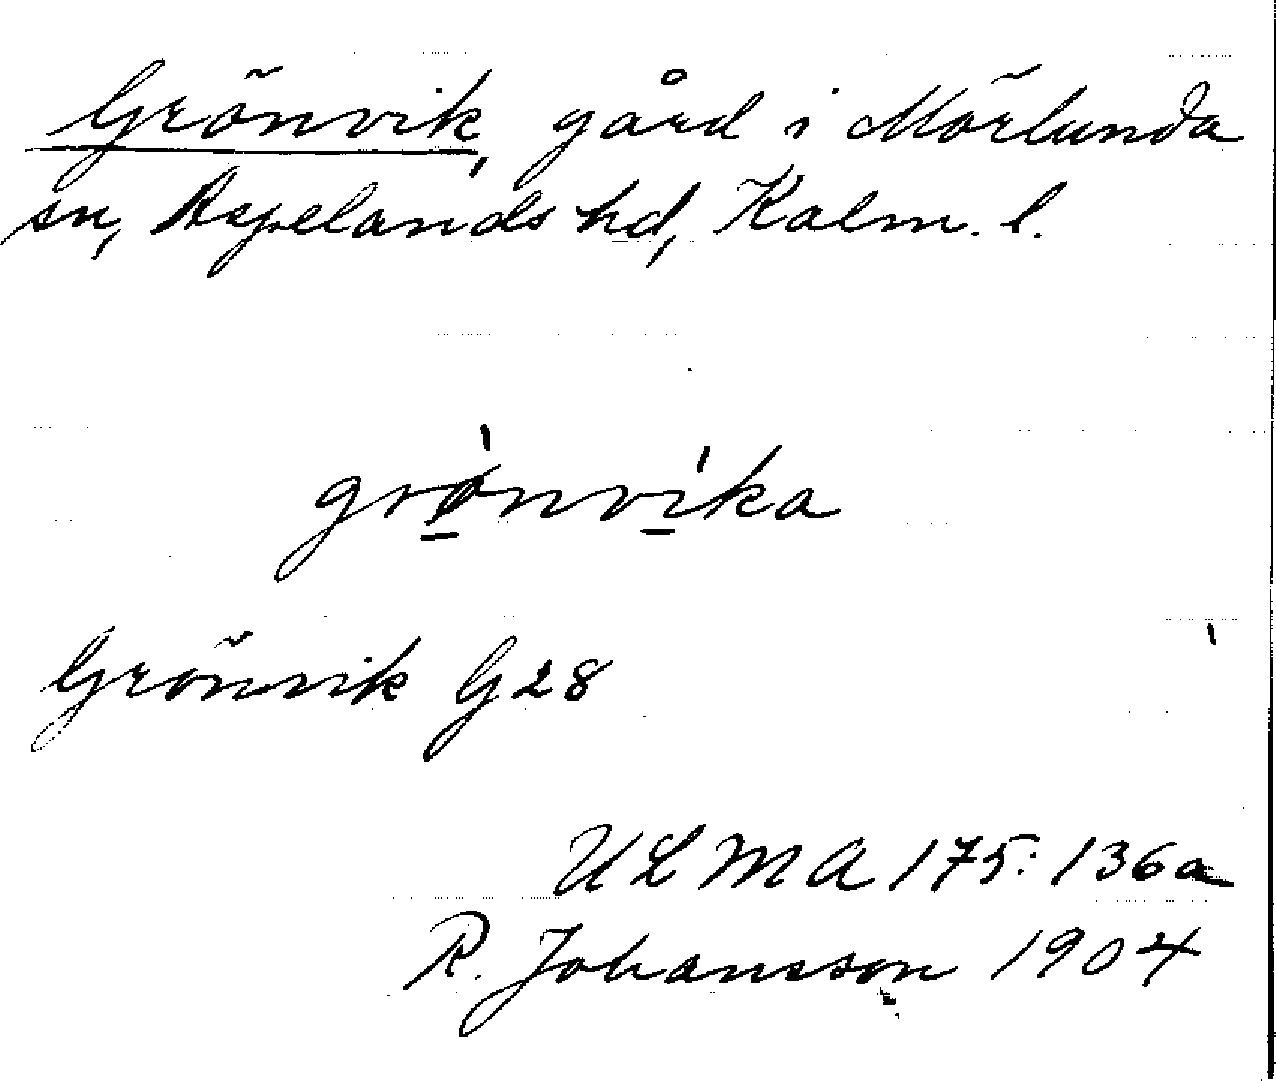 Grönvik, gård i Mörlunda
sn, Aspelands hd, Kalm. l.
grø̲̀nví̲ka
Grönvik G 28
ULMA 175:136a
R. Johansson 1904